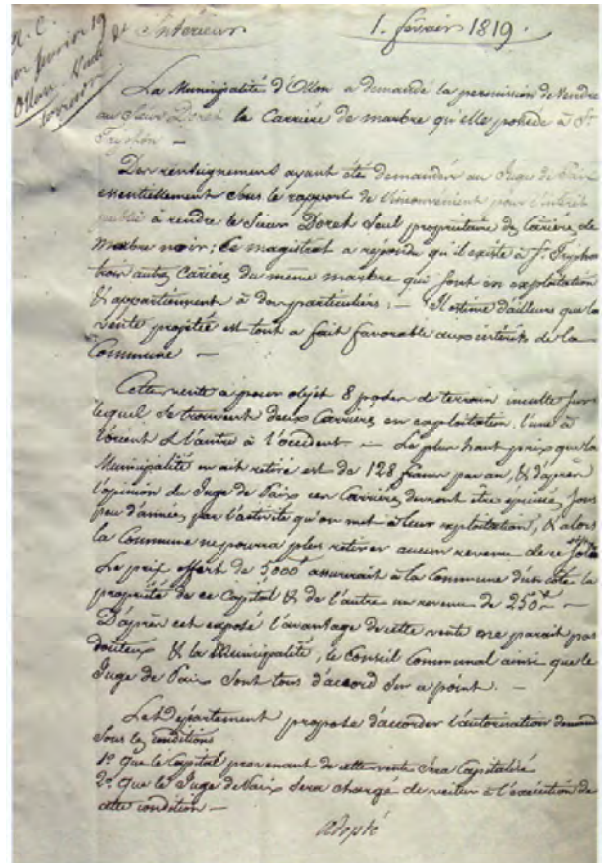 N. C.
1er fevrier 19
Ollon. Vente
terrain
Dt Intérieur 1. février 1819.
La Municipalité d'Ollon a demandé la permission de vendre
au Sieur Doret la Carrière de marbre qu'elle possède à St
Tryphon —
Des renseignemens ayant été demandés au Juge de Paix
essentiellement sous le rapport de l'inconvénient pour l'intérêt
public à rendre le Sieur Doret seul propriétaire des Carières de
marbre noir; Ce magistrat a répondu qu'il existe à St Tryphon
trois autres Carières du même marbre qui sont en exploitation
& appartiennent à des particuliers; — Il estime d'ailleurs que la
vente projetée est tout à fait favorable aux intérêts de la
Commune —
Cette vente a pour objet 8 poses de terrain inculte sur
lequel se trouvent deux Carrières en exploitation, l'une à
l'orient & l'autre à l'occident — Le plus haut prix que la
Municipalité en ait retiré est de 128 francs par an, & d'après
l'opinion du Juge de Paix ces Carrières devront être épuisées sous
peu d'années par l'activité qu'on met à leur exploitation, & alors
la Commune ne pourra plus retirer aucun revenu de ce sol.
Le prix offert de 5000 assurerait à la Commune d'un côté la
propriété de ce Capital & de l'autre un revenu de 250 —
D'après cet exposé l'avantage de cette vente ne parait pas
douteux & la Municipalité, le Conseil Communal ainsi que le
Juge de Paix sont tous d'accord sur ce point. —
Le Département propose d'accorder l'autorisation demand
sous les conditions
1o Que le Capital provenant de cette vente sera Capitalisé
2o Que le Juge de Paix sera chargé de veiller à l'exécution de
cette condition —
adopté